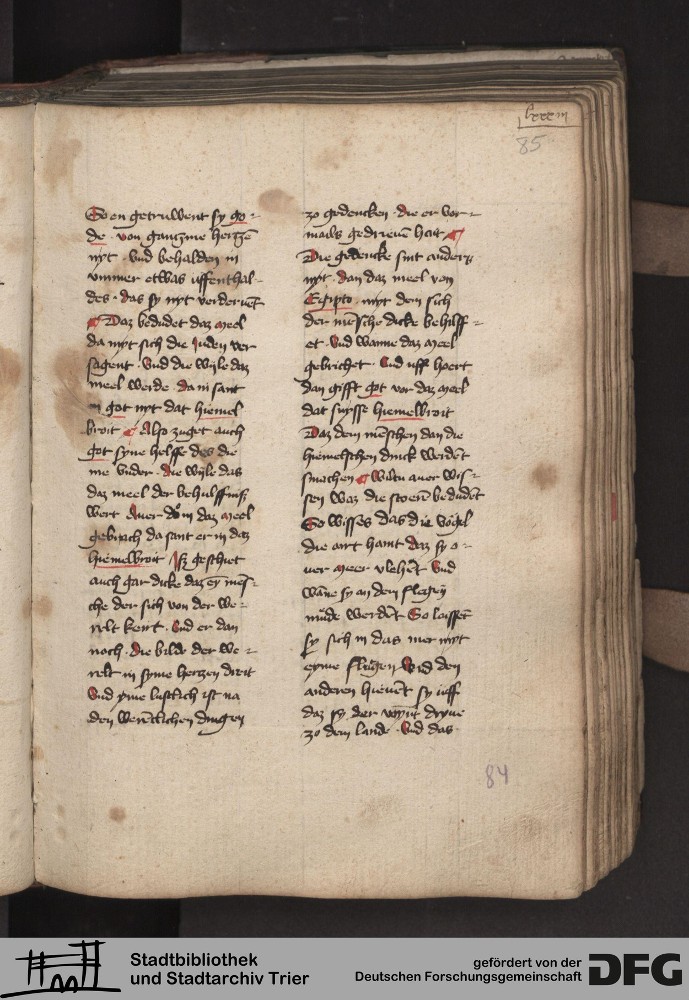 lxxxiii
85
So en getruwent sy go=
de · von gantzme hertzē
nyt · Vnd behalden in
vmmer etwas uffenthal=
des · das sy nyt verdervēt
Daz bedudet daz meel
da myt sich die Juden ver
sagent · Vnd die wyle daz
meel werde · da in sant
in got nyt dat hiemel
broit Also zuget auch
got syne helffe des die
me vnder · die wyle das
daz meel der behulffniß
wert Auer do in daz meel
gebrach da sant er in daz
hiemelbroit Iß geschiet
auch gar dicke daz ey mēs=
che der sich von der we=
relt kert · Vnd er dan
noch · die bilde der we=
relt in syme hertzen dreit
Vnd yme lustlich ist na
den werētlichen dingen
zo gedencken · die er vor=
mails gedrieuē hait
Die gedencke sint anders
nyt · dan daz meel von
Egipto myt dem sich
der mēsche dicke behilff=
et · Vnd wanne daz meel
gebrichet · Vnd uff hoert
dan gifft got vor daz meel
dat suysse hiemelbroit
Daz dem mēschen dan die
hiemelschen dinck werdēt
smachen Wiltu auer wis=
sen waz die storen bedudēt
So wisses das die vögel
die art haint daz sy o=
uer meer vlehēt Vnd
wāne sy an dem flegen
müde werdēt So laissēt
sy sich in das mer myt
eyme flugen Vnd den
anderen hieuēt sy uff
daz sy der wynt dryue
zo dem lande · Vnd das
84
Stadtbibliothek
und Stadtarchiv Trier
gefördert von der
Deutschen Forschungsgemeinschaft
DFG